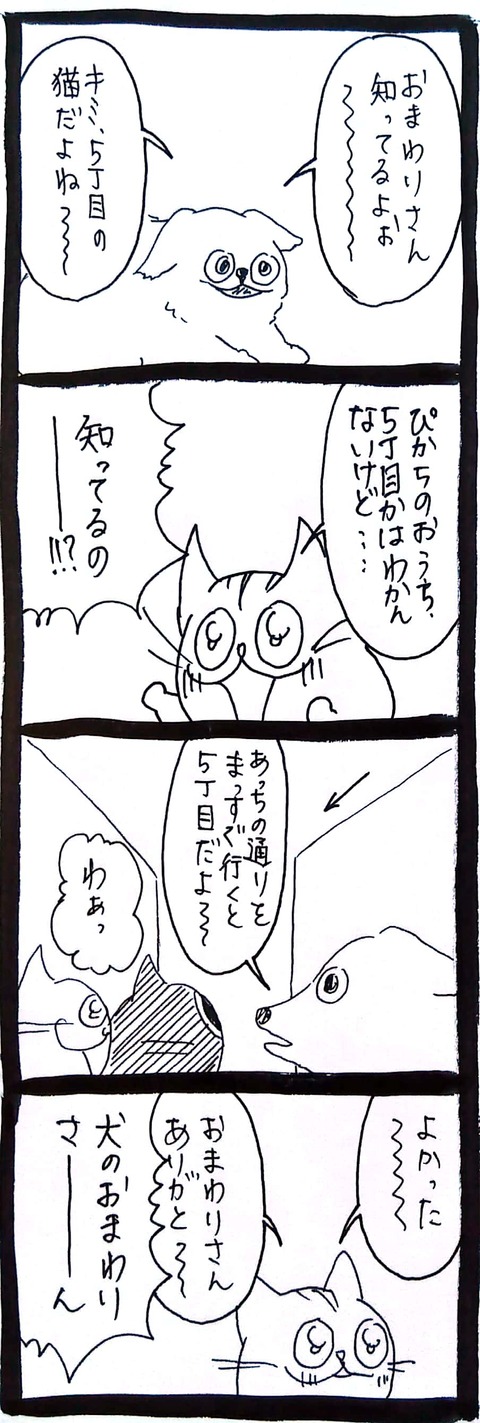 おまわりさん
知ってるよぉ
〜〜〜
キミ、5丁目の
猫だよね〜〜
ぴかちのおうち、
5丁目かはわかん
ないけど……
知ってるの
ーー!!?
あっちの通りを
まっすぐ行くと
5丁目だよ〜〜
わぁっ
よかった
〜〜〜
おまわりさん
ありがと〜〜
犬のおまわり
さーーん